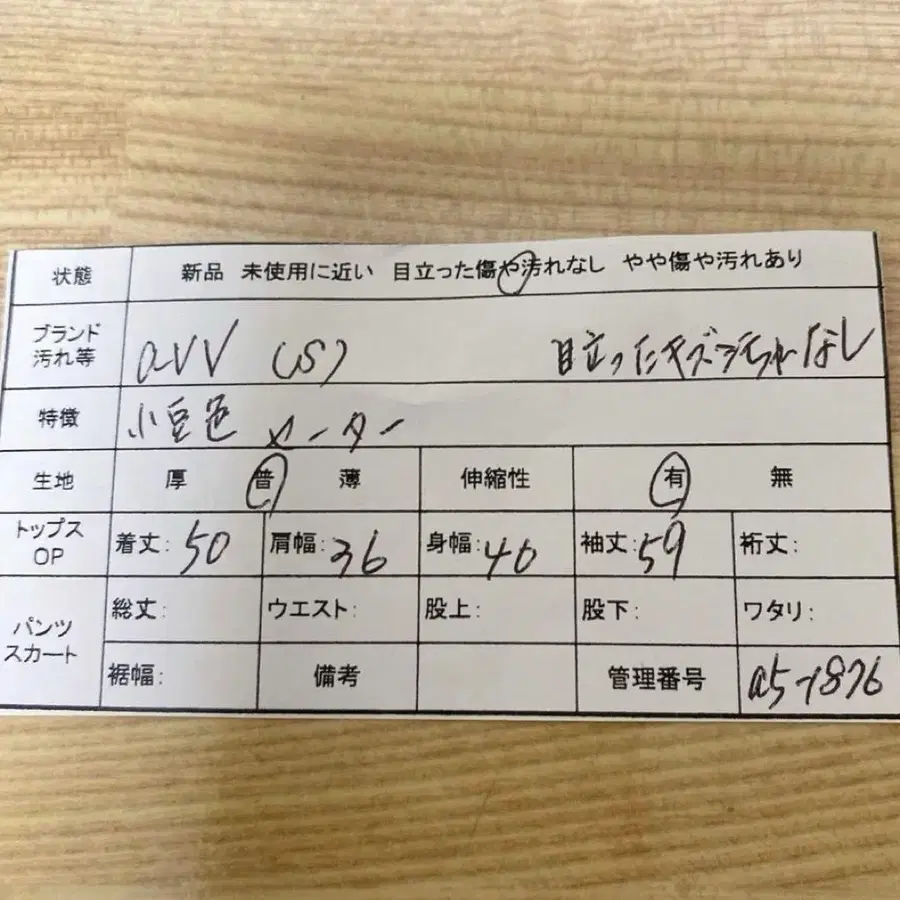 状態 新品 未使用に近い 目立った傷や汚れなし やや傷や汚れあり
ブランド
汚れ等 a.v.v (S) 目立ったキズ汚れなし
特徴 小豆色 セーター
生地 厚 普 薄 伸縮性 有 無
トップス
OP 着丈: 50 肩幅: 36 身幅: 40 袖丈: 59 裄丈:
パンツ
スカート 総丈: ウエスト: 股上: 股下: ワタリ:
裾幅: 備考 管理番号 a5-1876